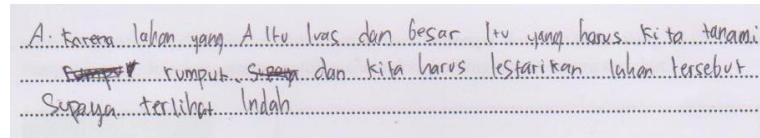 A. Karena lahan yang A Itu luas dan besar Itu yang harus kita tanami
rumput dan kita harus lestarikan lahan tersebut
Supaya terlihat Indah